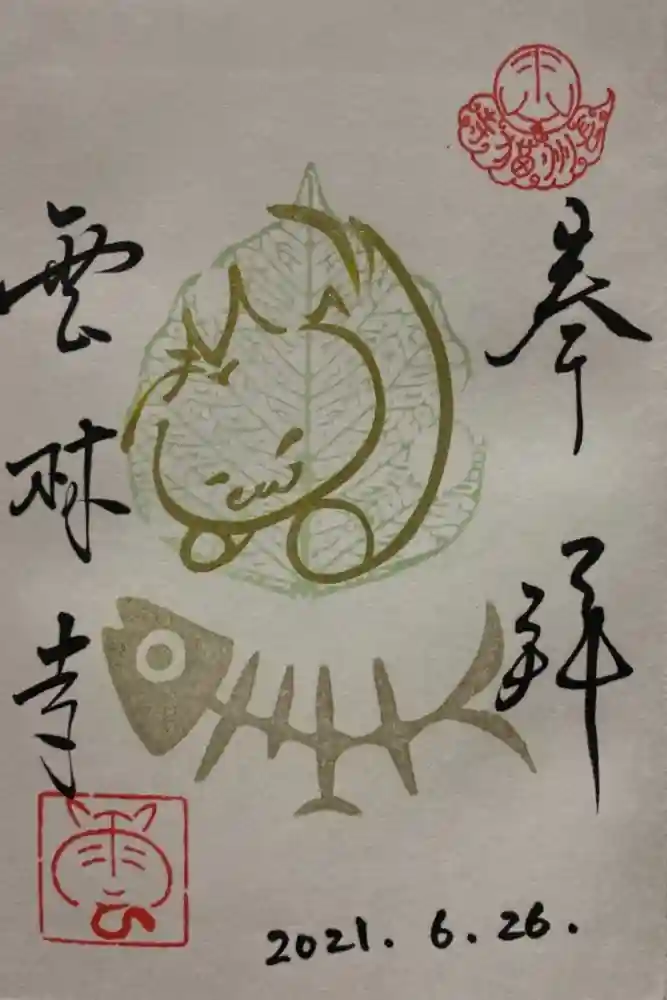 奉拝
雲林寺
2021. 6. 26.